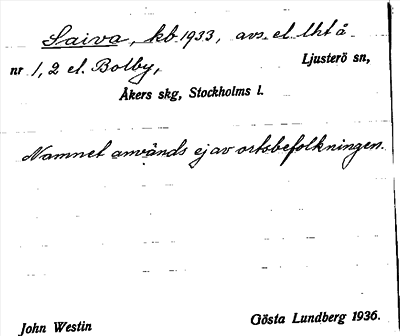 Saiva, kb. 1933, avs. el. lht å
nr 1, 2 el. Bolby, Ljusterö sn,
Åkers skg, Stockholms l.
Namnet används ej av ortsbefolkningen.
John Westin Gösta Lundberg 1936.